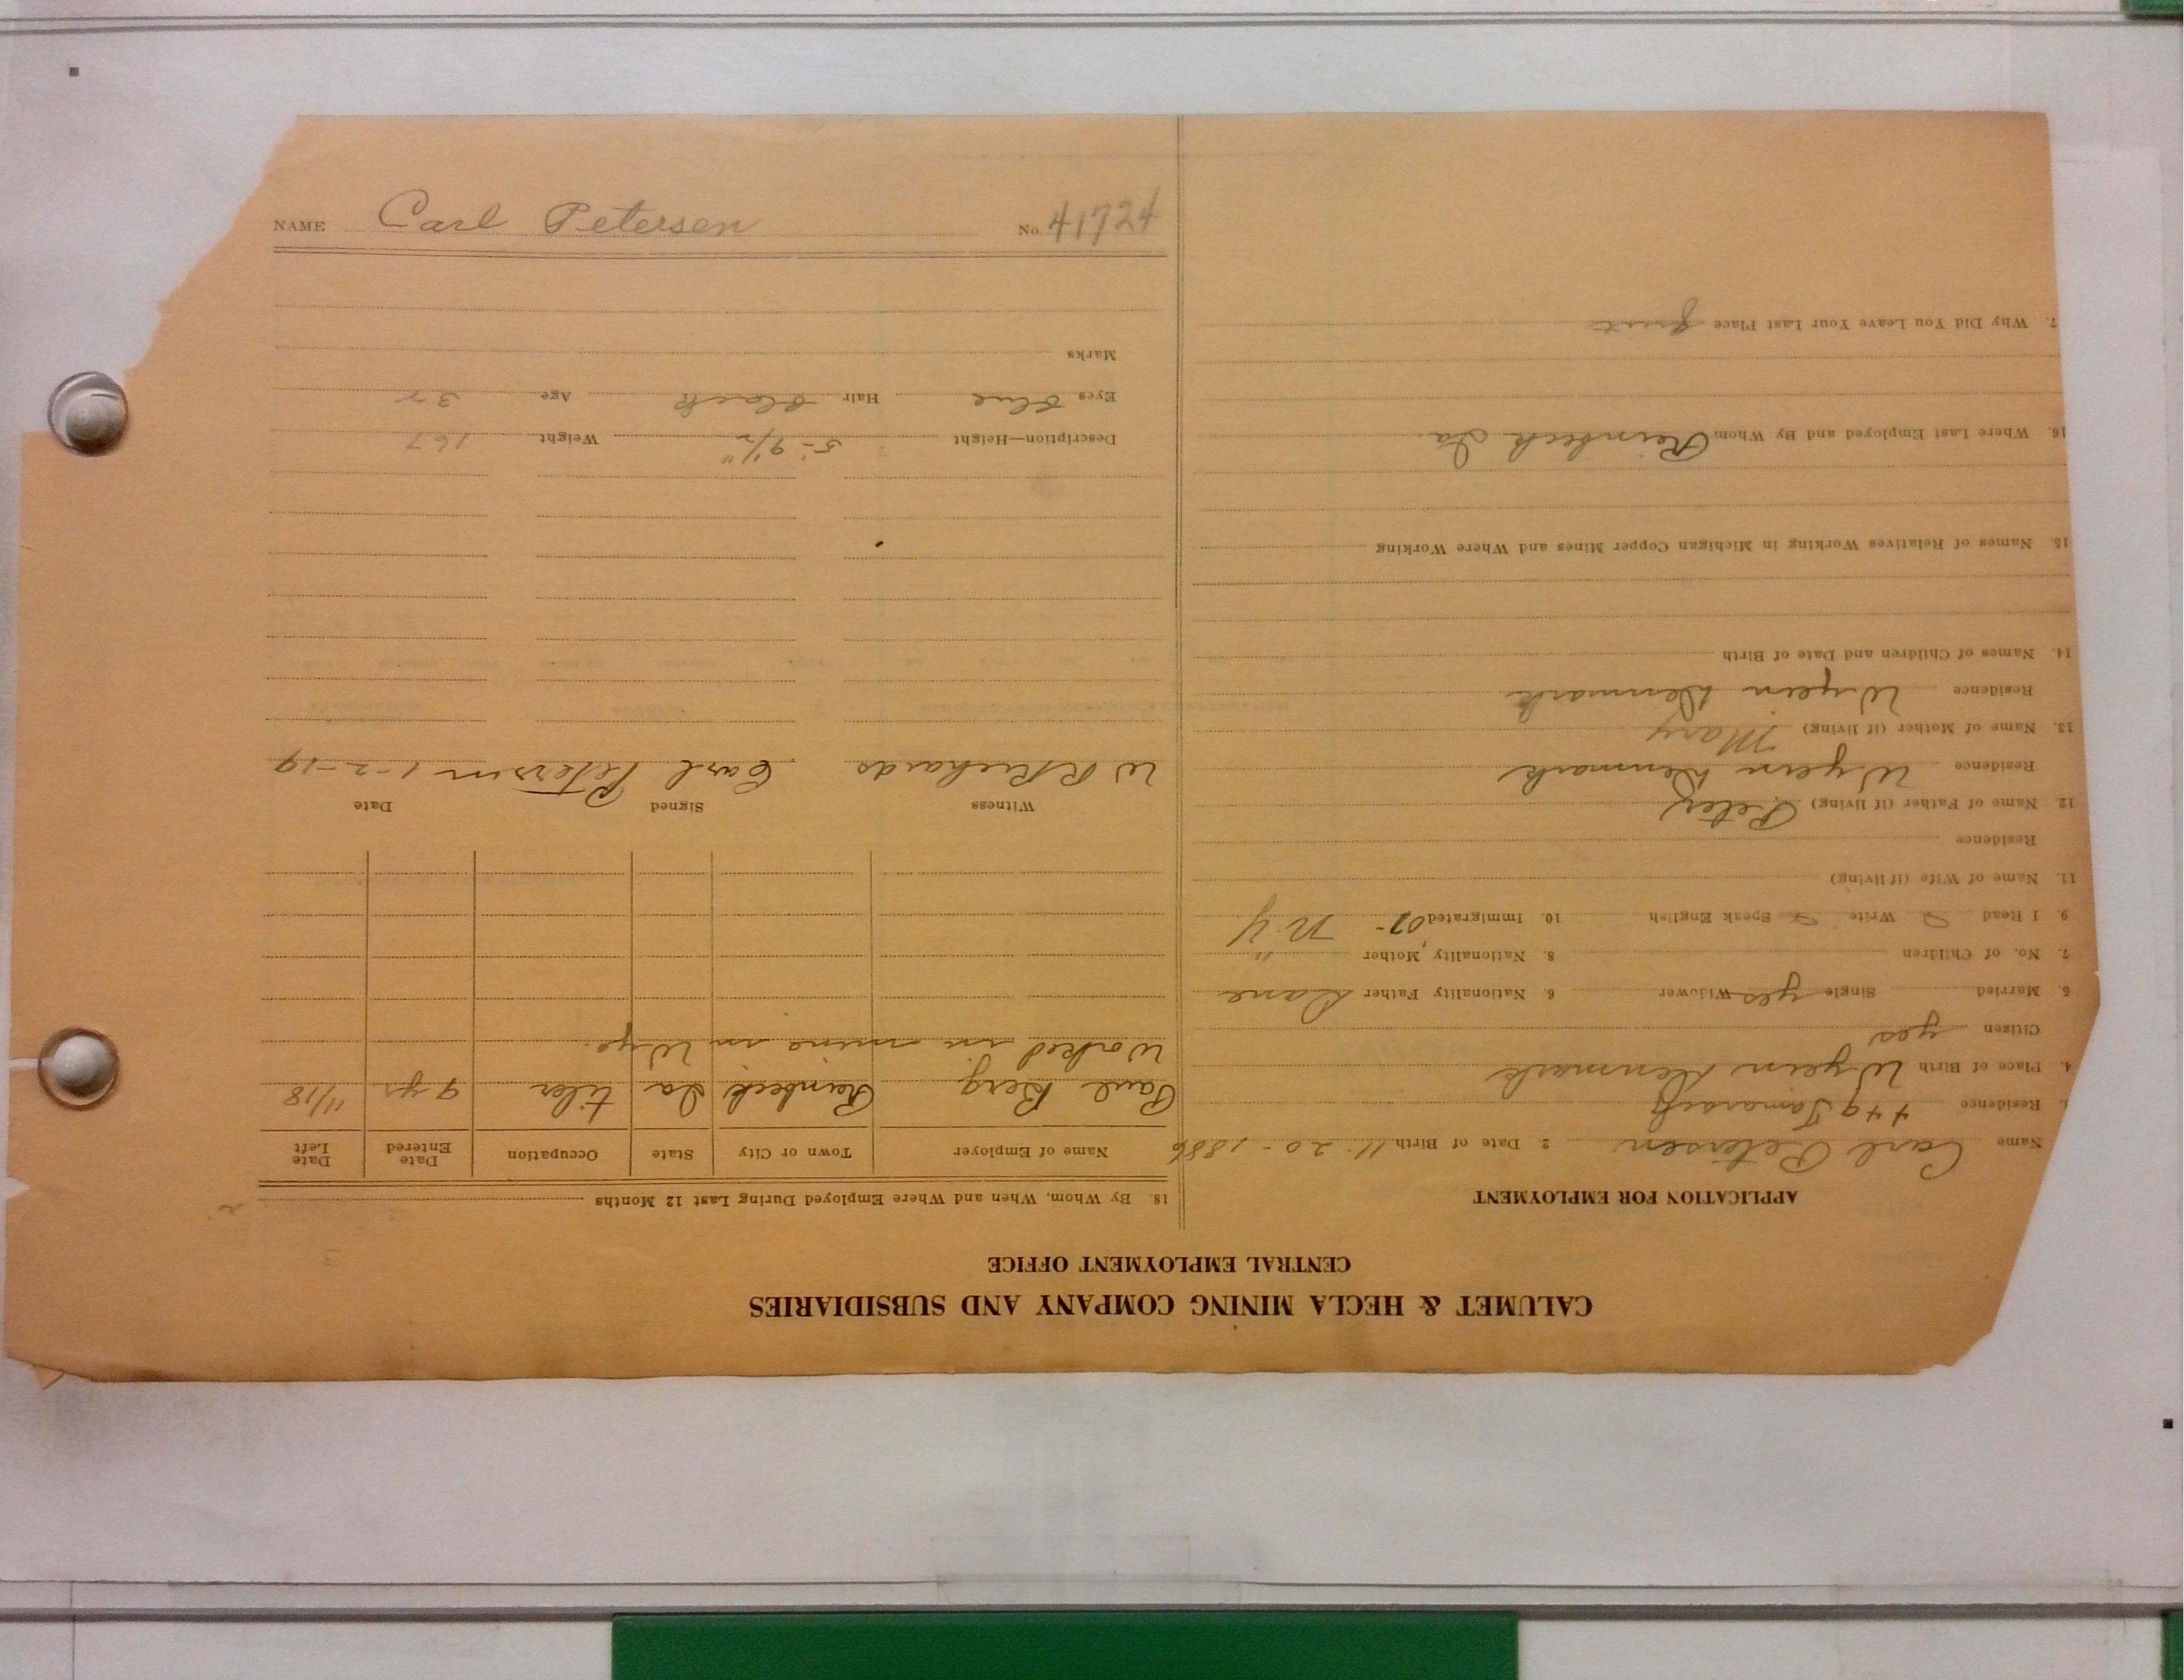 CALUMET & HECLA MINING COMPANY AND SUBSIDIARIES
CENTRAL EMPLOYMENT OFFICE
APPLICATION FOR EMPLOYMENT
Name Carl Petersen 2. Date of Birth 11-20-1886
Residence 449 Tamarack
4. Place of Birth Wyein Denmark
Citizen yes
5. Married Single yes Widower 6. Nationality Father Dane
7. No. of Children 8. Nationality, Mother "
9. I Read Write Speak English 10. Immigrated 07- N.Y
11. Name of Wife (if living)
Residence
12. Name of Father (if living) Peter
Residence Wyein Denmark
13. Name of Mother (if living) Mary
Residence Wyein Denmark
14. Names of Children and Date of Birth
15. Names of Relatives Working in Michigan Copper Mines and Where Working
16. Where Last Employed and By Whom Reinbeck Ia.
7. Why Did You Leave Your Last Place quit
18. By Whom, When and Where Employed During Last 12 Months
Name of Employer Town or City State Occupation Date Entered Date Left
Paul Berg Reinbeck Ia tiler 9 yr 11/18
Worked in mine in Wyo.
Witness Signed Date
W R Richards Carl Petersen 1-2-19
Description—Height 5-9 1/2" Weight 167
Eyes blue Hair black Age 32
Marks
NAME Carl Petersen No. 41724